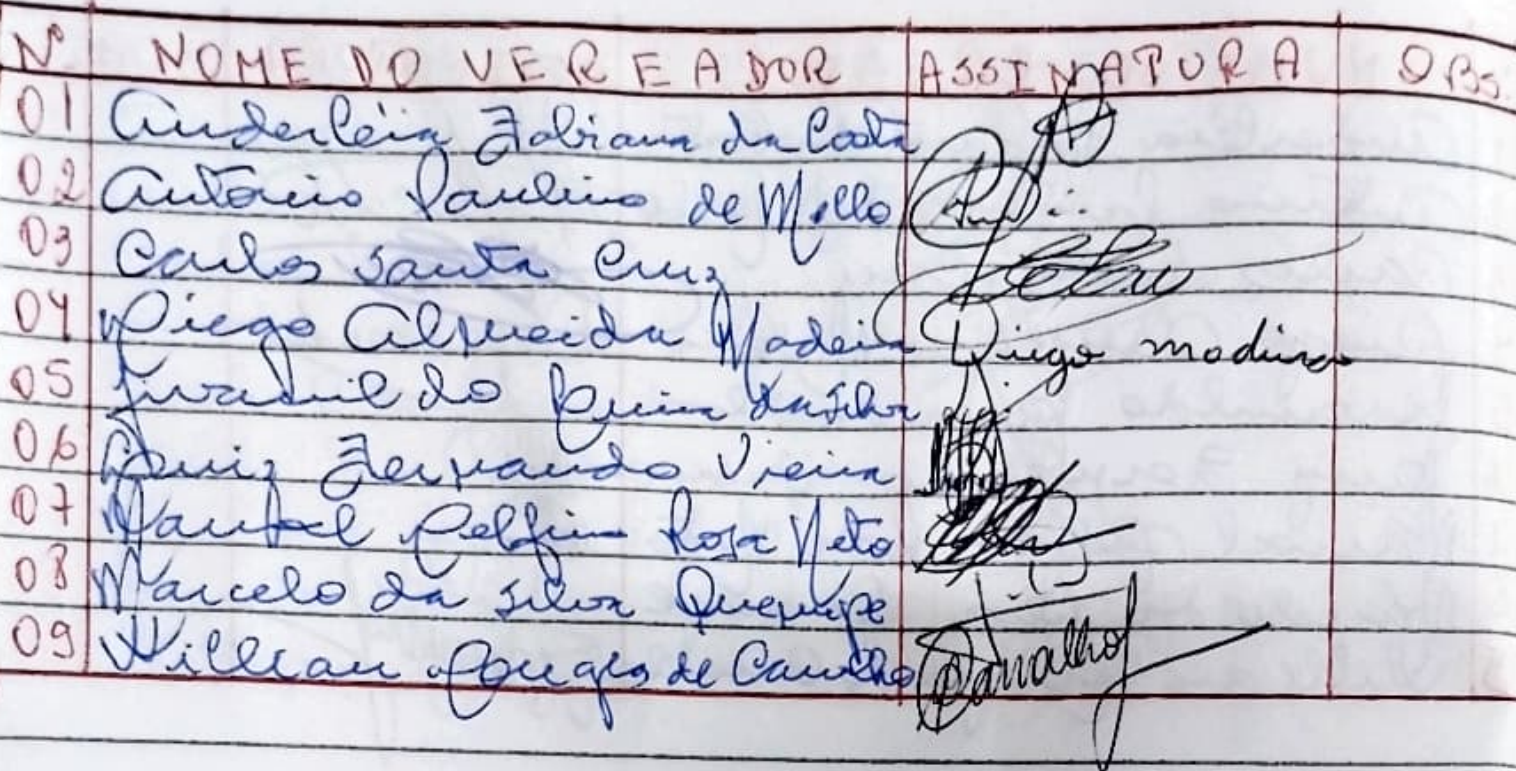 Nº NOME DO VEREADOR ASSINATURA OBS.
01 Anderléia Fabiana da Costa
02 Antônio Paulino de Mello
03 Carlos Santa Cruz
04 Diego Almeida Madeira Diego madeira
05 Juvenil do da Silva
06 Luiz Fernando Vieira
07 Manoel Delfino Rosa Neto
08 Marcelo da Silva Quenupe
09 Willian de Carvalho Carvalho